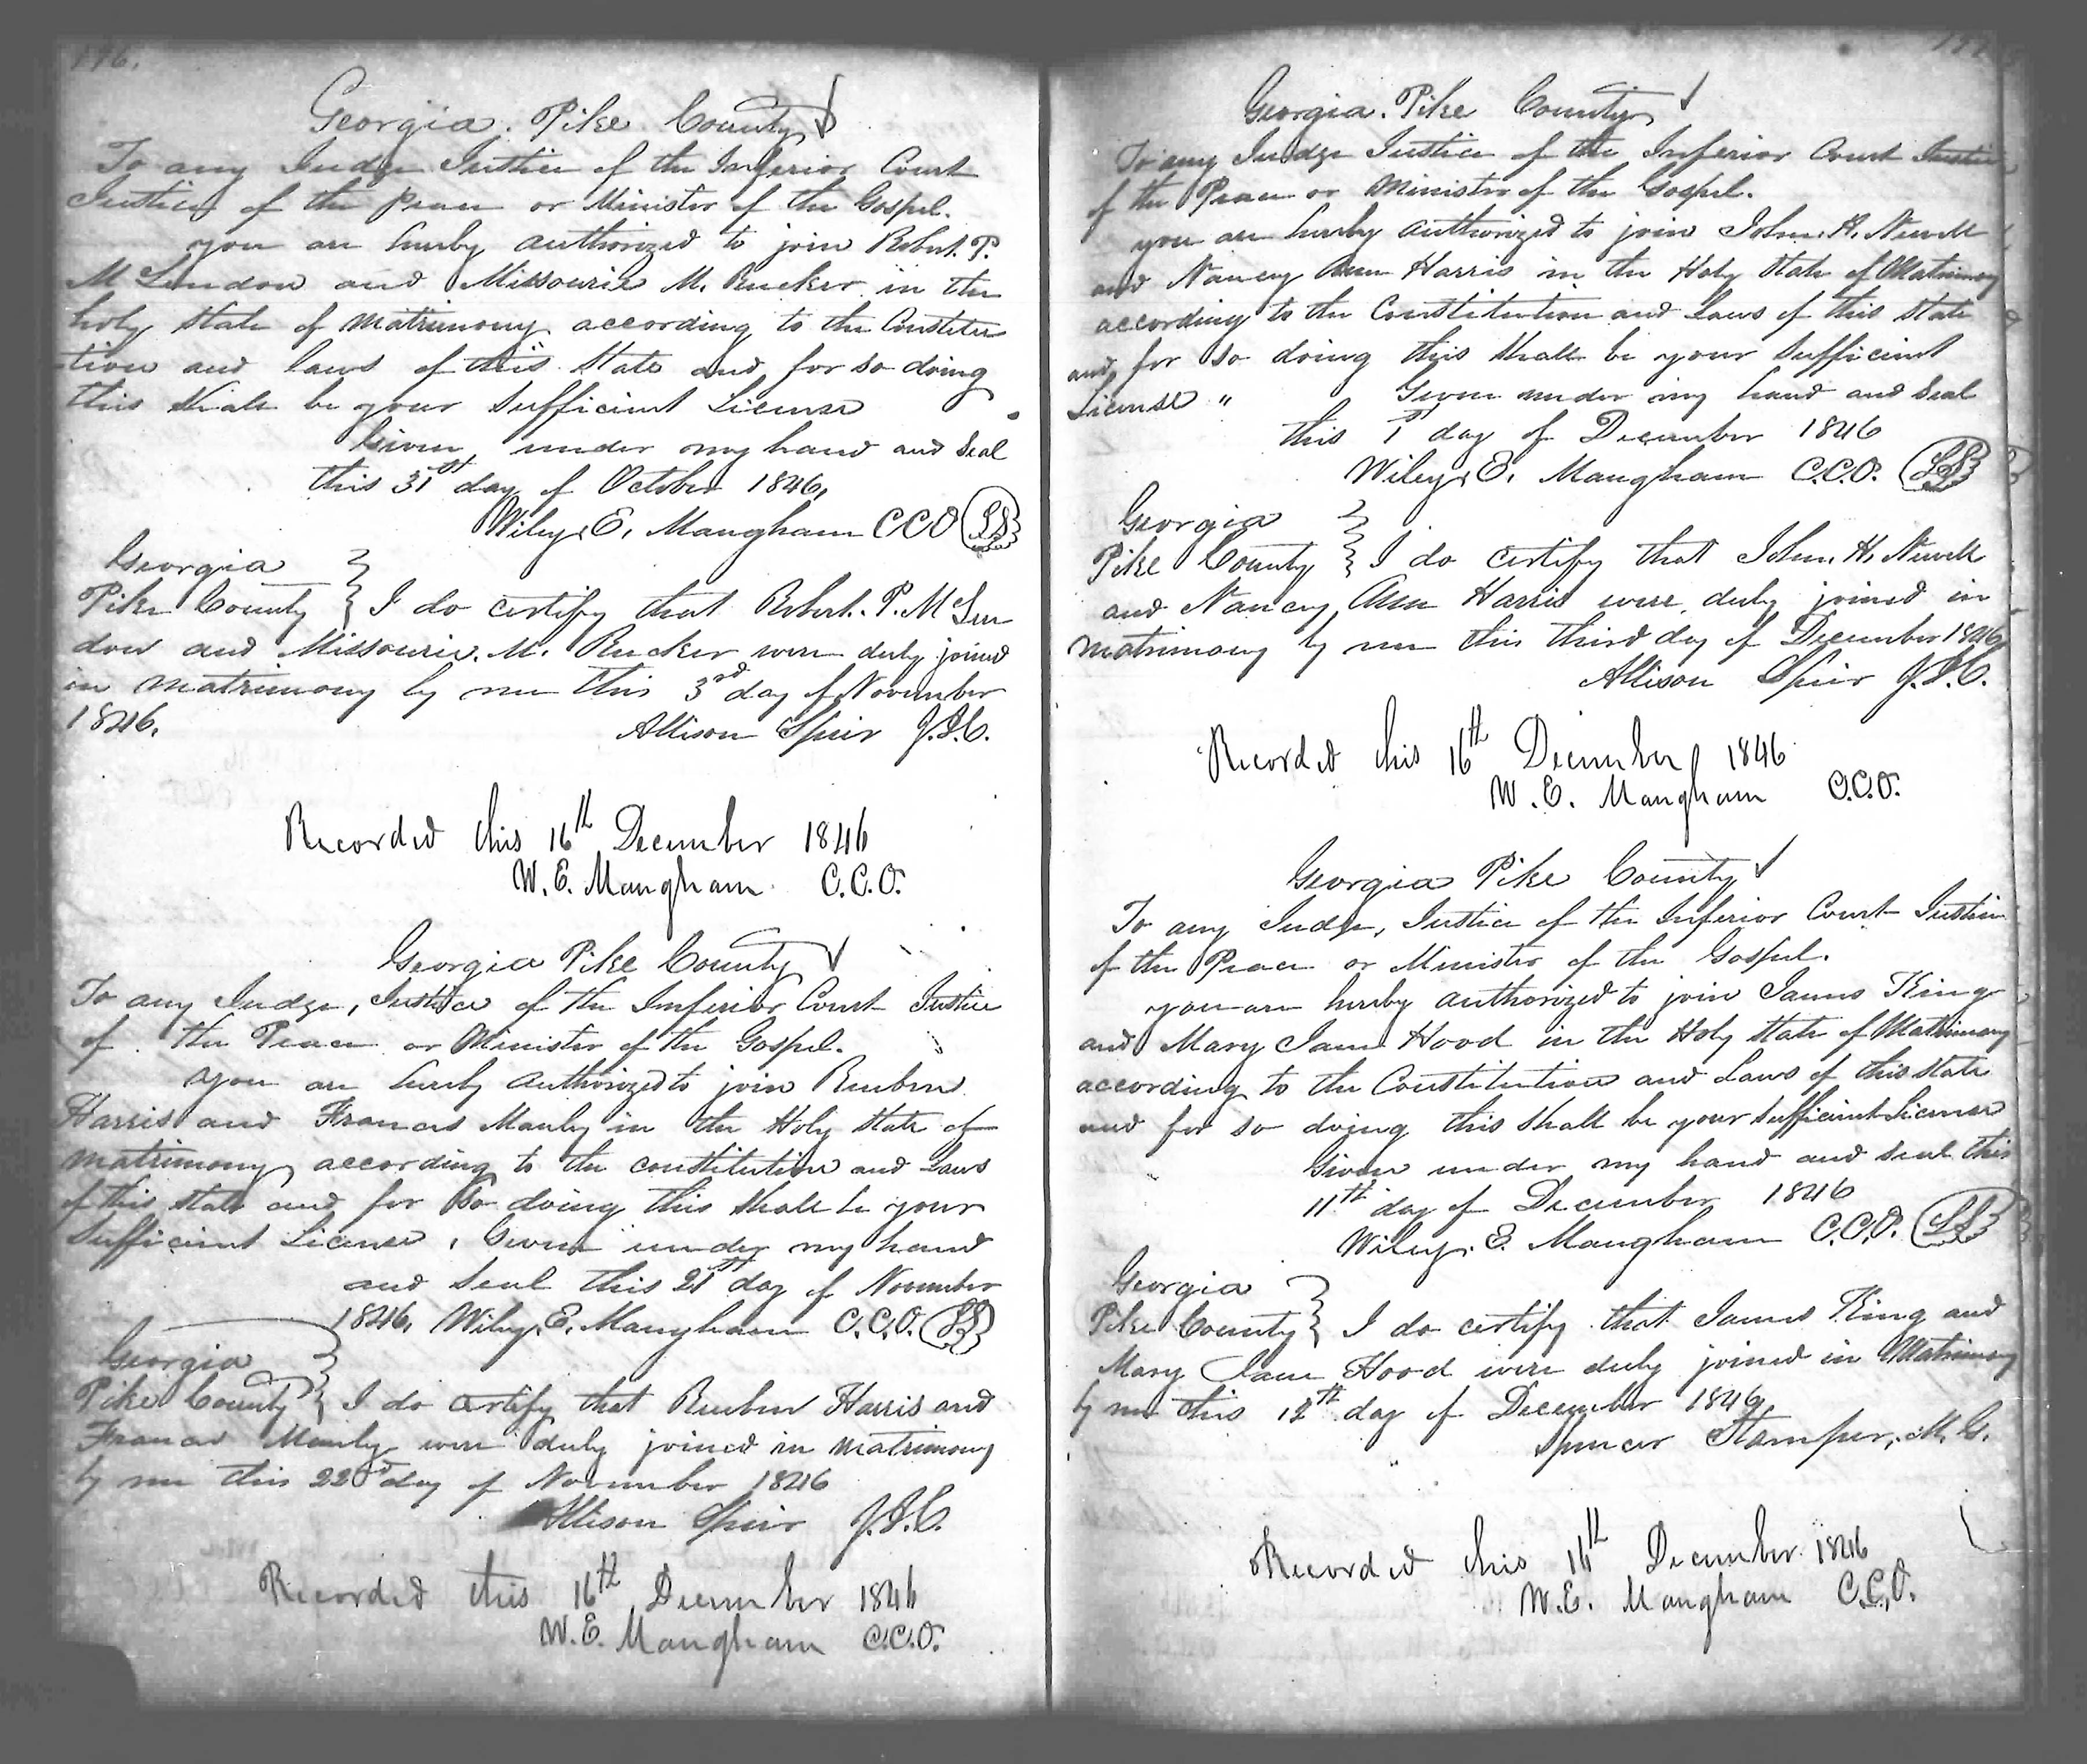 176.
Georgia. Pike County
To any Judge Justice of the Inferior Court
Justice of the Peace or Minister of the Gospel.
you are hereby authorized to join Robert. P.
McLendon and Missourie M. Rucker in the
holy State of Matrimony according to the Constitu
tion and laws of this State and for so doing
this shall be your Sufficient License
Given under my hand and Seal
this 31st day of October 1846,
Wiley. E. Mangham CCO LS
Georgia
Pike County } I do certify that Robert. P. McLen
don and Missourie. M. Rucker were duly joined
in Matrimony by me this 3rd day of November
1846.
Allison Speir J.I.C.
Recorded this 16th December 1846
W. E. Mangham. C.C.O.
Georgia Pike County
To any Judge, Justice of the Inferior Court Justice
of the Peace or Minister of the Gospel.
you are hereby authorized to join Reuben
Harris and Frances Manly in the Holy State of
matrimony according to the constitution and Laws
of this State and for so doing this shall be your
Sufficient License, Given under my hand
and Seal this 21st day of November
1846, Wiley. E. Mangham C.C.O. LS
Georgia
Pike County } I do certify that Reuben Harris and
Frances Manly were duly joined in matrimony
by me this 22nd day of November 1846
Allison Speir J.I.C.
Recorded this 16th December 1846
W. E. Mangham C.C.O.
177
Georgia. Pike County
To any Judge Justice of the Inferior Court Justice
of the Peace or Minister of the Gospel.
you are hereby authorized to join John. H. Newell
and Nancy Ann Harris in the Holy State of Matrimony
according to the Constitution and Laws of this State
and for so doing this shall be your Sufficient
License " Given under my hand and Seal
this 1st day of December 1846
Wiley. E. Mangham C.C.O. LS
Georgia
Pike County } I do certify that John. H. Newell
and Nancy Ann Harris were duly joined in
matrimony by me this third day of December 1846
Allison Speir J.I.C.
Recorded this 16th December 1846
W. E. Mangham C.C.O.
Georgia Pike County
To any Judge, Justice of the Inferior Court Justice
of the Peace or Minister of the Gospel.
you are hereby authorized to join James King
and Mary Jane Hood in the Holy State of Matrimony
according to the Constitution and Laws of this State
and for so doing this shall be your Sufficient License
Given under my hand and seal this
11th day of December 1846
Wiley. E. Mangham C.C.O. LS
Georgia
Pike County } I do certify that James King and
Mary Jane Hood were duly joined in Matrimony
by me this 12th day of December 1846,
Spencer Stamper, M. G.
Recorded this 16th December 1846
W. E. Mangham C.C.O.